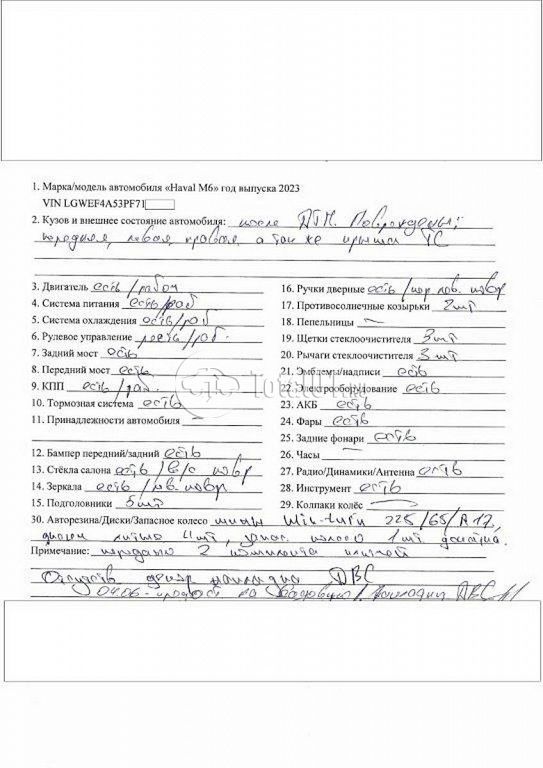 1. Марка/модель автомобиля «Haval M6» год выпуска 2023
VIN LGWEF4A53PF71
2. Кузов и внешнее состояние автомобиля: после ДТП. Повреждены:
передняя, левая, правая, а так же крыша ТС
3. Двигатель есть/рабоч
4. Система питания есть/раб
5. Система охлаждения есть/раб
6. Рулевое управление есть/раб.
7. Задний мост есть
8. Передний мост есть
9. КПП есть/раб.
10. Тормозная система есть
11. Принадлежности автомобиля —
12. Бампер передний/задний есть
13. Стёкла салона есть / в/с повр
14. Зеркала есть / лв. повр
15. Подголовники 5 шт
16. Ручки дверные есть / пер лев. повр
17. Противосолнечные козырьки 2 шт
18. Пепельницы —
19. Щетки стеклоочистителя 3 шт
20. Рычаги стеклоочистителя 3 шт
21. Эмблемы/надписи есть
22. Электрооборудование есть
23. АКБ есть
24. Фары есть
25. Задние фонари есть
26. Часы —
27. Радио/Динамики/Антенна есть
28. Инструмент есть
29. Колпаки колёс —
30. Авторезина/Диски/Запасное колесо шины 225/65/R17,
диски литые 4 шт, запас. колесо 1 шт
Примечание: передано 2 комплекта ключей
Отсутств декор накладка ДВС
04.06 -